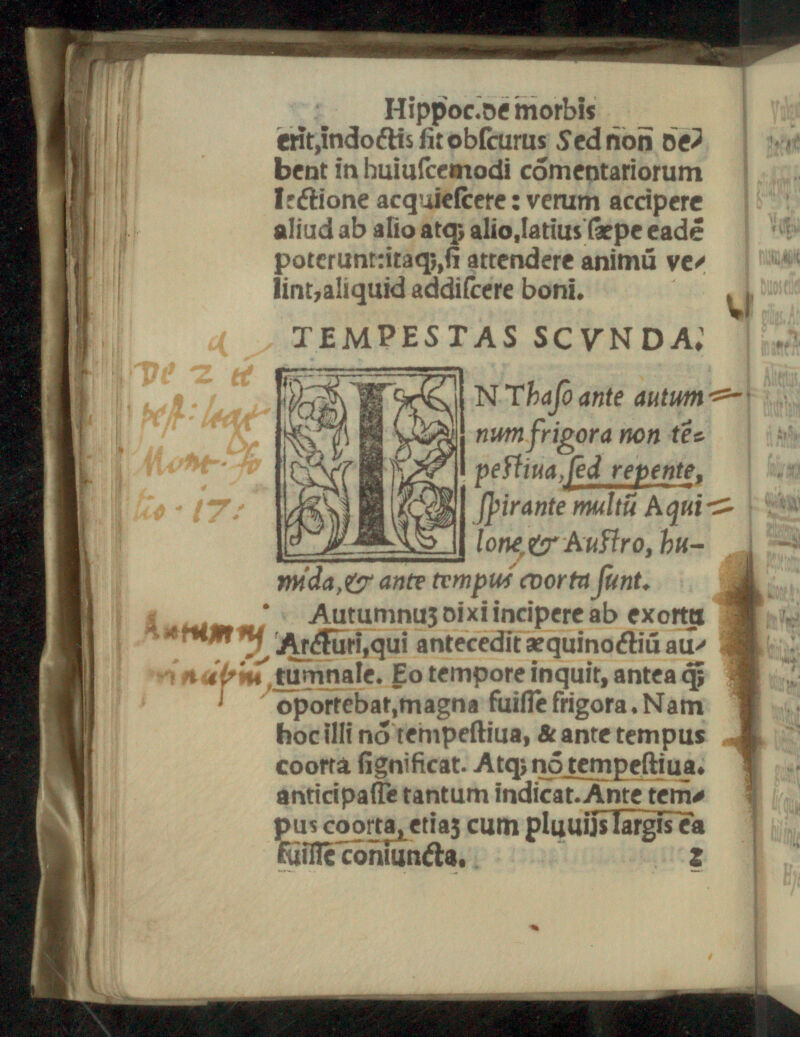 Hippoc.de morbis
erit,indoctis fit obſcurus Sed non de⸗
bent in huiuſcemodi cōmentariorum
lectione acquieſcere : verum accipere
aliud ab alio atq; alio,latius ſæpe eadē
poterunt:itaq;,ſi attendere animū ve⸗
lint,aliquid addiſcere boni.
TEMPESTAS SCVNDA.
IN Thaſo ante autum⸗
num frigora non tē⸗
peſtiua,ſed repente,
ſpirante multū Aqui⸗
lone,& Auſtro, hu-
mida,& ante tempus coorta ſunt.
Autumnuꝫ dixi incipere ab exortu
Arcturi,qui antecedit æquinoctiū au⸗
tumnale. Eo tempore inquit, antea q̃;
oportebat,magna fuiſſe frigora. Nam
hoc illi nō tempeſtiua, & ante tempus
coorta ſignificat. Atq; nō tempeſtiua.
anticipaſſe tantum indicat. Ante tem⸗
pus coorta, etiaꝫ cum pluuijs largis ea
fuiſſe coniuncta. 2
d
De 2 tē
peſt: lege
Mont· fo
lio · 17:
Autumnꝰ